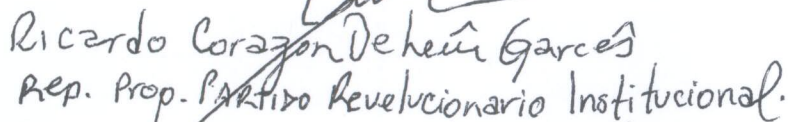 Ricardo Corazon De león Garcés
Rep. Prop. PARTIDO Revelucionario Institucional.